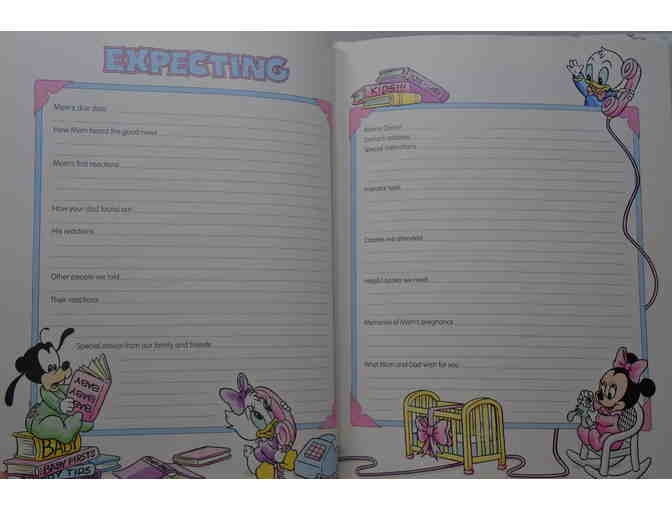 EXPECTING
Mom's due date
How Mom heard the good news
Mom's first reactions
How your dad found out
His reactions
Other people we told
Their reactions
Special advice from our family and friends
BABY
BABY
BABY
BABY
BABY FIRSTS
TIPS
KIDS!!!
Mom's Doctor
Doctor's address
Special instructions
Prenatal tests
Classes we attended
Helpful books we read
Memories of Mom's pregnancy
What Mom and Dad wish for you